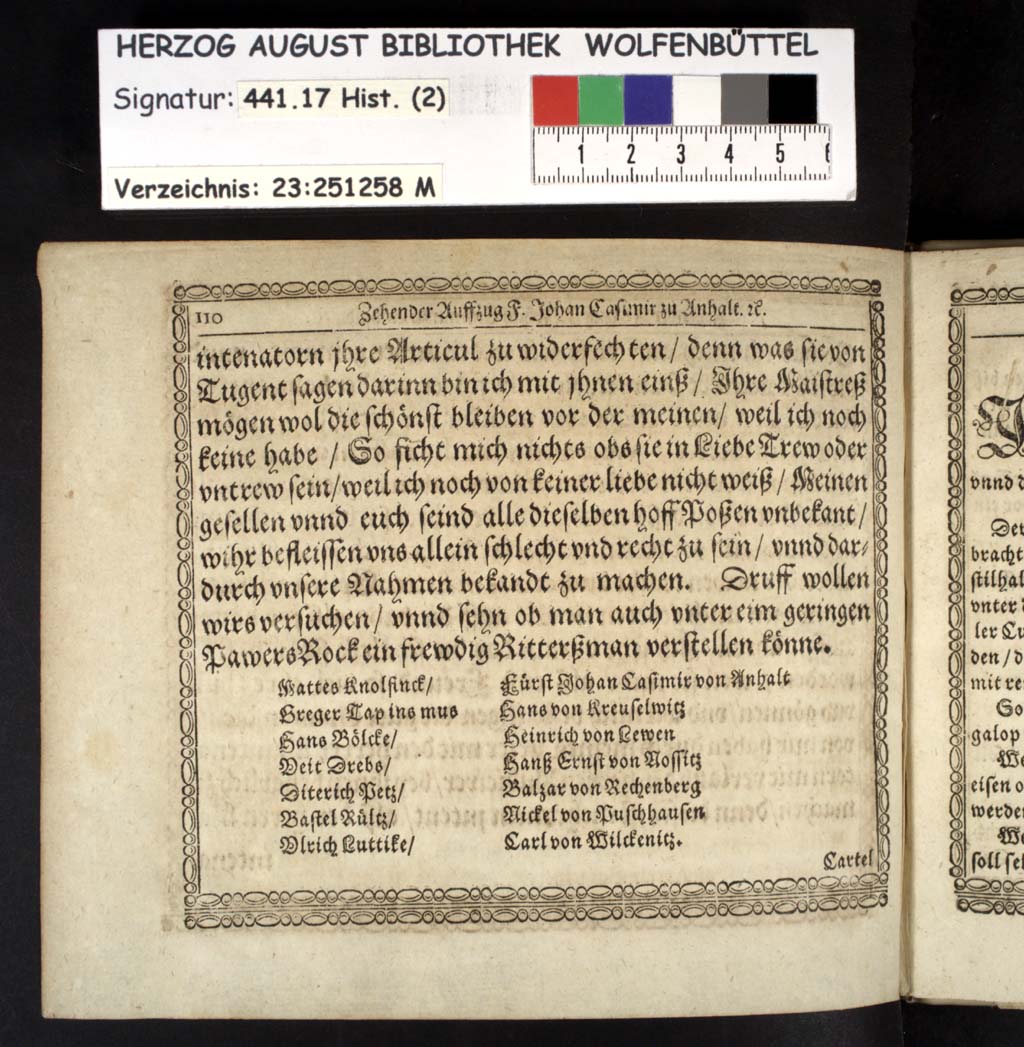 HERZOG AUGUST BIBLIOTHEK WOLFENBÜTTEL
Signatur: 441.17 Hist. (2)
1 2 3 4 5 6
Verzeichnis: 23:251258 M
110 Zehender Auffzug F. Johan Casimir zu Anhalt. ꝛc.
intenatorn jhre Articul zu widerfechten / denn was sie von
Tugent sagen darinn bin ich mit jhnen einß / Jhre Maistreß
mögen wol die schönst bleiben vor der meinen / weil ich noch
keine habe / So ficht mich nichts obs sie in Liebe Trew oder
vntrew sein / weil ich noch von keiner liebe nicht weiß / Meinen
gesellen vnnd euch seind alle dieselben hoff Poßen vnbekant /
wihr befleissen vns allein schlecht vnd recht zu sein / vnnd dar⸗
durch vnsere Nahmen bekandt zu machen. Druff wollen
wirs versuchen / vnnd sehn ob man auch vnter eim geringen
Pawers Rock ein frewdig Ritterßman verstellen könne.
Mattes Knolfinck / Fürst Johan Casimir von Anhalt
Greger Tap ins mus Hans von Kreuselwitz
Hans Bölcke / Heinrich von Lewen
Veit Drebs / Hanß Ernst von Nossitz
Diterich Petz / Balzar von Rechenberg
Bastel Rültz / Nickel von Puschhausen
Vlrich Luttike / Carl von Wilckenitz.
Cartel
vnnd d
Der
bracht
stilhal
vnter d
ler Cu
den / d
mit re
So
galop
We
eisen o
werde
We
soll sel